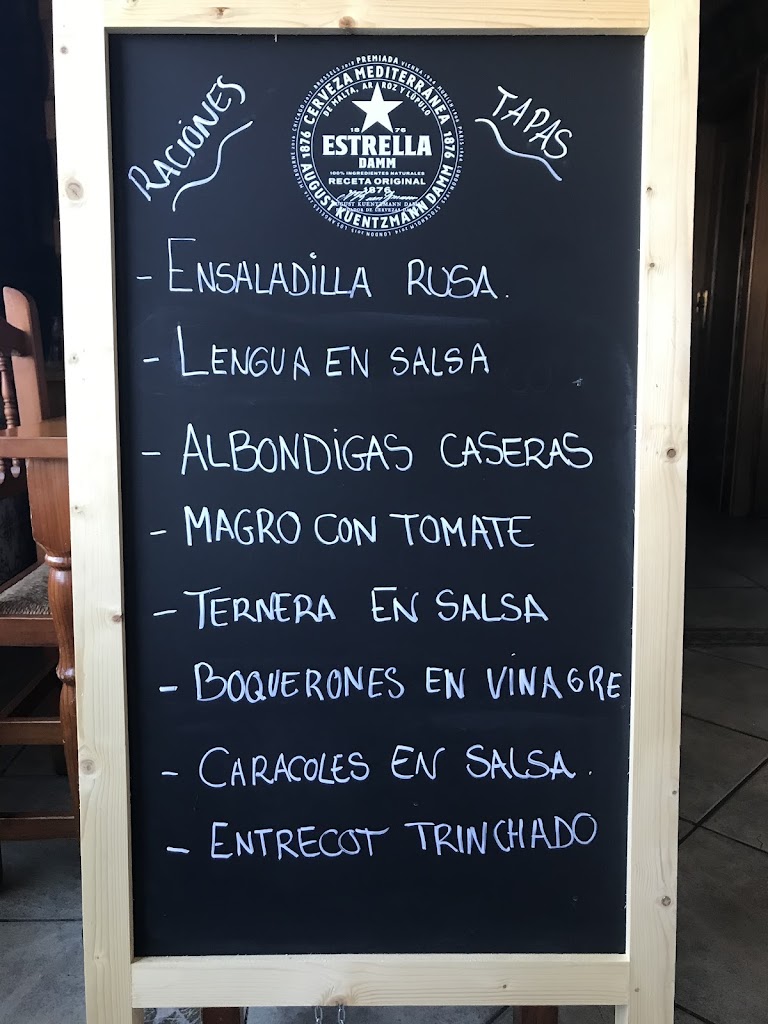 RACIONES
TAPAS
PREMIADA
CERVEZA MEDITERRÁNEA
DE MALTA, ARROZ Y LÚPULO
1876
1876
18 76
ESTRELLA
DAMM
100% INGREDIENTES NATURALES
RECETA ORIGINAL
1876
AUGUST KUENTZMANN DAMM
- ENSALADILLA RUSA.
- LENGUA EN SALSA
- ALBONDIGAS CASERAS
- MAGRO CON TOMATE
- TERNERA EN SALSA
- BOQUERONES EN VINAGRE
- CARACOLES EN SALSA.
- ENTRECOT TRINCHADO